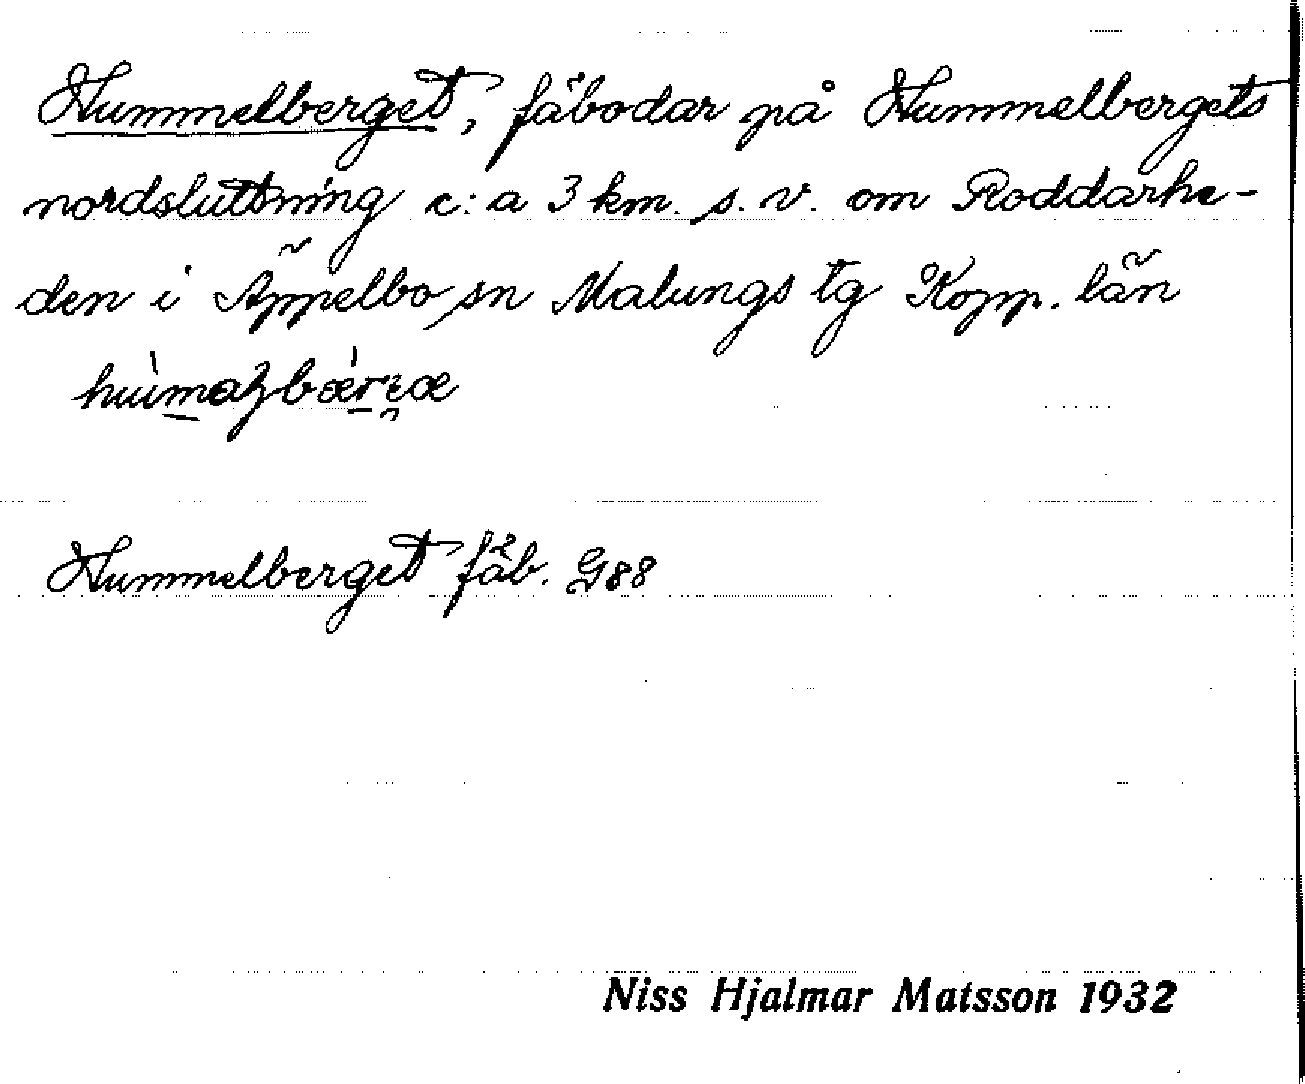 Hummelberget, fäbodar på Hummelbergets
nordsluttning c:a 3 km. s. v. om Roddarhe-
den i Äppelbo sn Malungs tg Kopp. län
Hummelberget fäb. G88
Niss Hjalmar Matsson 1932